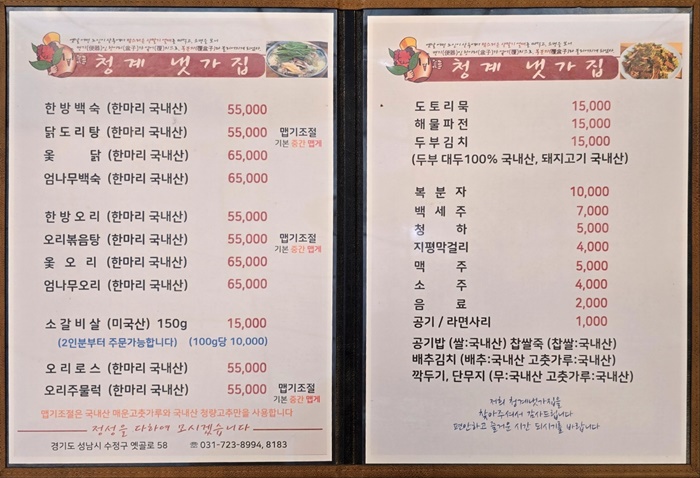 청계 냇가집
한방백숙 (한마리 국내산) 55,000
닭도리탕 (한마리 국내산) 55,000 맵기조절
기본 중간 맵게
옻 닭 (한마리 국내산) 65,000
엄나무백숙 (한마리 국내산) 65,000
한방오리 (한마리 국내산) 55,000
오리볶음탕 (한마리 국내산) 55,000 맵기조절
기본 중간 맵게
옻 오 리 (한마리 국내산) 65,000
엄나무오리 (한마리 국내산) 65,000
소갈비살 (미국산) 150g 15,000
(2인분부터 주문가능합니다) (100g당 10,000)
오리로스 (한마리 국내산) 55,000
오리주물럭 (한마리 국내산) 55,000 맵기조절
기본 중간 맵게
맵기조절은 국내산 매운고춧가루와 국내산 청량고추만을 사용합니다
정성을 다하여 모시겠습니다
경기도 성남시 수정구 옛골로 58 ☎031-723-8994, 8183
청계 냇가집
도토리묵 15,000
해물파전 15,000
두부김치 15,000
(두부 대두100% 국내산, 돼지고기 국내산)
복 분 자 10,000
백 세 주 7,000
청 하 5,000
지평막걸리 4,000
맥 주 5,000
소 주 4,000
음 료 2,000
공기 / 라면사리 1,000
공기밥 (쌀:국내산) 찹쌀죽 (찹쌀:국내산)
배추김치 (배추:국내산 고춧가루:국내산)
깍두기, 단무지 (무:국내산 고춧가루:국내산)
저희 청계냇가집을
찾아주셔서 감사드립니다
편안하고 즐거운 시간 되시기를 바랍니다